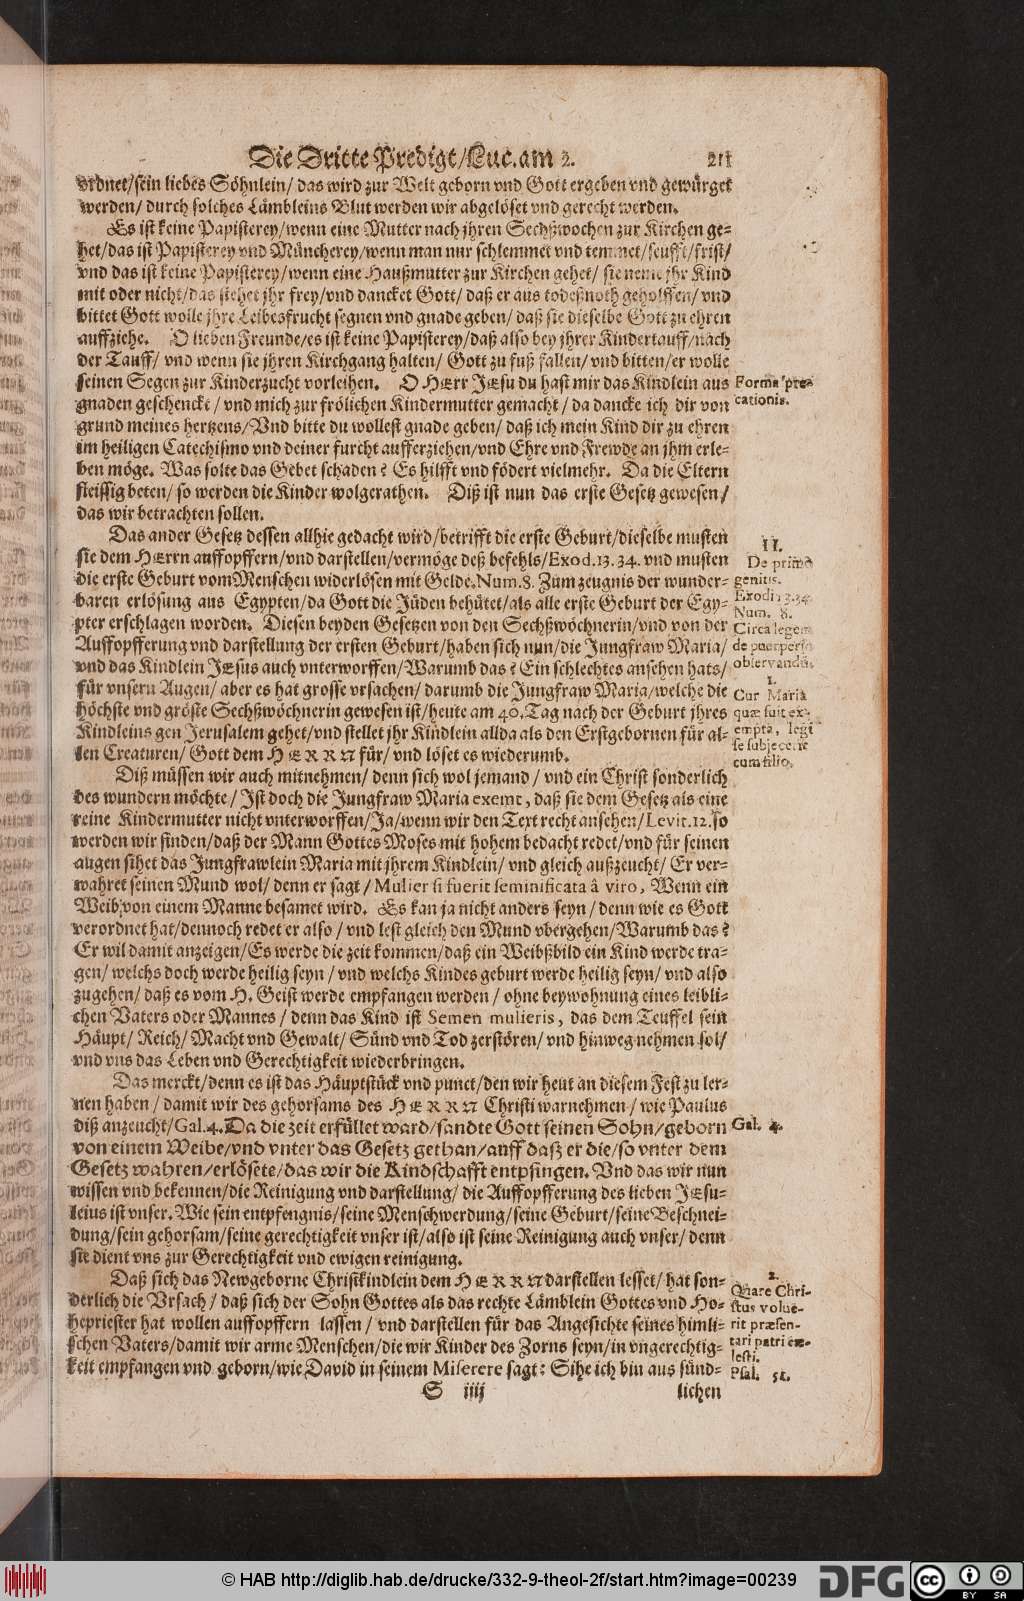 Die Dritte Predigt/Luc. am 2. 211
ordnet/sein liebes Söhnlein/ das wird zur Welt geborn vnd Gott ergeben vnd gewürget
werden/ durch solches Lämbleins Blut werden wir abgelöset vnd gerecht werden.
Es ist keine Papisterey/wenn eine Mutter nach jhren Sechßwochen zur Kirchen ge-
het/das ist Papisterey vnd Müncherey/wenn man nur schlemmet vnd temmet/seufft/frist/
vnd das ist keine Papisterey/wenn eine Haußmutter zur Kirchen gehet/ sie neme jhr Kind
mit oder nicht/das stehet jhr frey/vnd dancket Gott/ daß er aus todeßnoth geholffen/ vnd
bittet Gott wolle jhre Leibesfrucht segnen vnd gnade geben/ daß sie dieselbe Gott zu ehren
auffziehe. O lieben Freunde/es ist keine Papisterey/daß also bey jhrer Kindertauff/nach
der Tauff/ vnd wenn sie jhren Kirchgang halten/ Gott zu fuß fallen/ vnd bitten/er wolle
seinen Segen zur Kinderzucht vorleihen. O HErr JEsu du hast mir das Kindlein aus
gnaden geschenckt/ vnd mich zur frölichen Kindermutter gemacht/ da dancke ich dir von
grund meines hertzens/Vnd bitte du wollest gnade geben/ daß ich mein Kind dir zu ehren
im heiligen Catechismo vnd deiner furcht aufferziehen/vnd Ehre vnd Frewde an jhm erle-
ben möge. Was solte das Gebet schaden? Es hilfft vnd födert vielmehr. Da die Eltern
fleissig beten/ so werden die Kinder wolgerathen. Diß ist nun das erste Gesetz gewesen/
das wir betrachten sollen.
Forma pre-
cationis.
Das ander Gesetz dessen allhie gedacht wird/betrifft die erste Geburt/dieselbe musten
sie dem HErrn auffopffern/vnd darstellen/vermöge deß befehls/Exod.13.34. vnd musten
die erste Geburt vom Menschen widerlösen mit Gelde. Num.8. Zum zeugnis der wunder-
baren erlösung aus Egypten/da Gott die Jüden behütet/als alle erste Geburt der Egy-
pter erschlagen worden. Diesen beyden Gesetzen von den Sechßwöchnerin/vnd von der
Auffopfferung vnd darstellung der ersten Geburt/haben sich nun/die Jungfraw Maria/
vnd das Kindlein JEsus auch vnterworffen/Warumb das? Ein schlechtes ansehen hats/
für vnsern Augen/ aber es hat grosse vrsachen/ darumb die Jungfraw Maria/welche die
höchste vnd gröste Sechßwöchnerin gewesen ist/heute am 40.Tag nach der Geburt jhres
Kindleins gen Jerusalem gehet/vnd stellet jhr Kindlein allda als den Erstgebornen für al-
len Creaturen/ Gott dem HERRN für/ vnd löset es wiederumb.
II.
De primo
genitis.
Exodi 13.34.
Num. 8.
Circa legem
de puerperis
observandu.
1.
Cur Maria
quæ fuit ex-
empta, legi
se subjecerit
cum filio.
Diß müssen wir auch mitnehmen/ denn sich wol jemand/ vnd ein Christ sonderlich
des wundern möchte/ Ist doch die Jungfraw Maria exemt, daß sie dem Gesetz als eine
reine Kindermutter nicht vnterworffen/Ja/wenn wir den Text recht ansehen/Levit.12. so
werden wir finden/daß der Mann Gottes Moses mit hohem bedacht redet/vnd für seinen
augen sihet das Jungfrawlein Maria mit jhrem Kindlein/ vnd gleich außzeucht/ Er ver-
wahret seinen Mund wol/ denn er sagt/ Mulier si fuerit seminificata â viro, Wenn ein
Weib von einem Manne besamet wird. Es kan ja nicht anders seyn/ denn wie es Gott
verordnet hat/dennoch redet er also/ vnd lest gleich den Mund vbergehen/Warumb das?
Er wil damit anzeigen/Es werde die zeit kommen/daß ein Weibßbild ein Kind werde tra-
gen/ welchs doch werde heilig seyn/ vnd welchs Kindes geburt werde heilig seyn/ vnd also
zugehen/ daß es vom H. Geist werde empfangen werden/ ohne beywohnung eines leibli-
chen Vaters oder Mannes/ denn das Kind ist Semen mulieris, das dem Teuffel sein
Häupt/ Reich/ Macht vnd Gewalt/ Sünd vnd Tod zerstören/ vnd hinweg nehmen sol/
vnd vns das Leben vnd Gerechtigkeit wiederbringen.
Das merckt/denn es ist das Häuptstück vnd punct/den wir heut an diesem Fest zu ler-
nen haben/ damit wir des gehorsams des HERRN Christi warnehmen/ wie Paulus
diß anzeucht/Gal.4. Da die zeit erfüllet ward/sandte Gott seinen Sohn/geborn
von einem Weibe/vnd vnter das Gesetz gethan/auff daß er die/so vnter dem
Gesetz wahren/erlösete/das wir die Kindschafft entpfingen. Vnd das wir nun
wissen vnd bekennen/die Reinigung vnd darstellung/ die Auffopfferung des lieben JEsu-
leins ist vnser. Wie sein entpfengnis/seine Menschwerdung/seine Geburt/seine Beschnei-
dung/sein gehorsam/seine gerechtigkeit vnser ist/also ist seine Reinigung auch vnser/ denn
sie dient vns zur Gerechtigkeit vnd ewigen reinigung.
Gal. 4.
Daß sich das Newgeborne Christkindlein dem HERRN darstellen lesset/ hat son-
derlich die Vrsach/ daß sich der Sohn Gottes als das rechte Lämblein Gottes vnd Ho-
hepriester hat wollen auffopffern lassen/ vnd darstellen für das Angesichte seines himli-
schen Vaters/damit wir arme Menschen/die wir Kinder des Zorns seyn/in vngerechtig-
keit empfangen vnd geborn/wie David in seinem Miserere sagt: Sihe ich bin aus sünd-
2.
Quare Chri-
stus volue-
rit præsen-
tari patri cæ-
lesti.
Psal. 51.
S iiij lichen
© HAB http://diglib.hab.de/drucke/332-9-theol-2f/start.htm?image=00239
DFG
cc BY SA